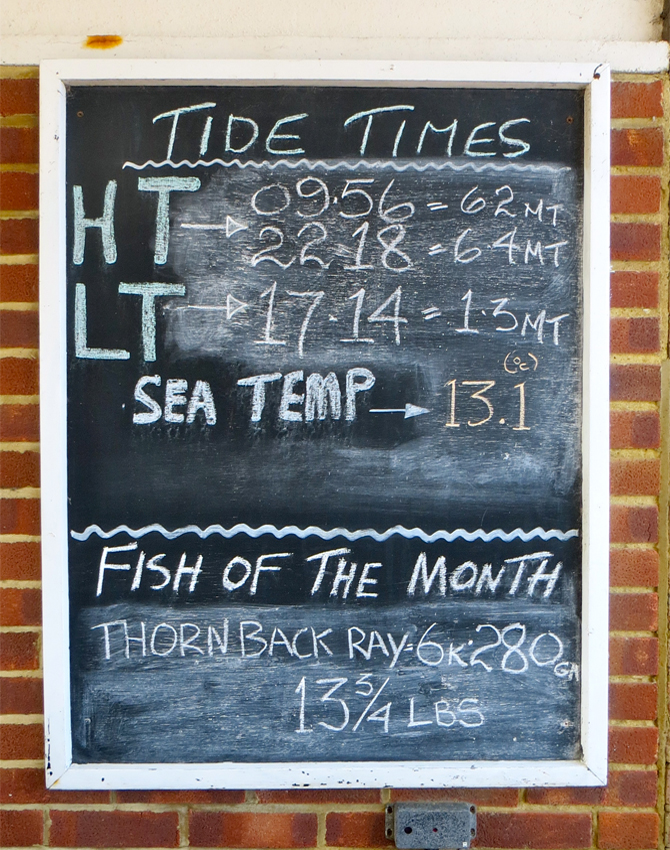 TIDE TIMES
HT → 09.56 = 6.2 MT
22.18 = 6.4 MT
LT → 17.14 = 1.3 MT
(°c)
SEA TEMP → 13.1
FISH OF THE MONTH
THORNBACK RAY-6K.280GM
13 3/4 LBS